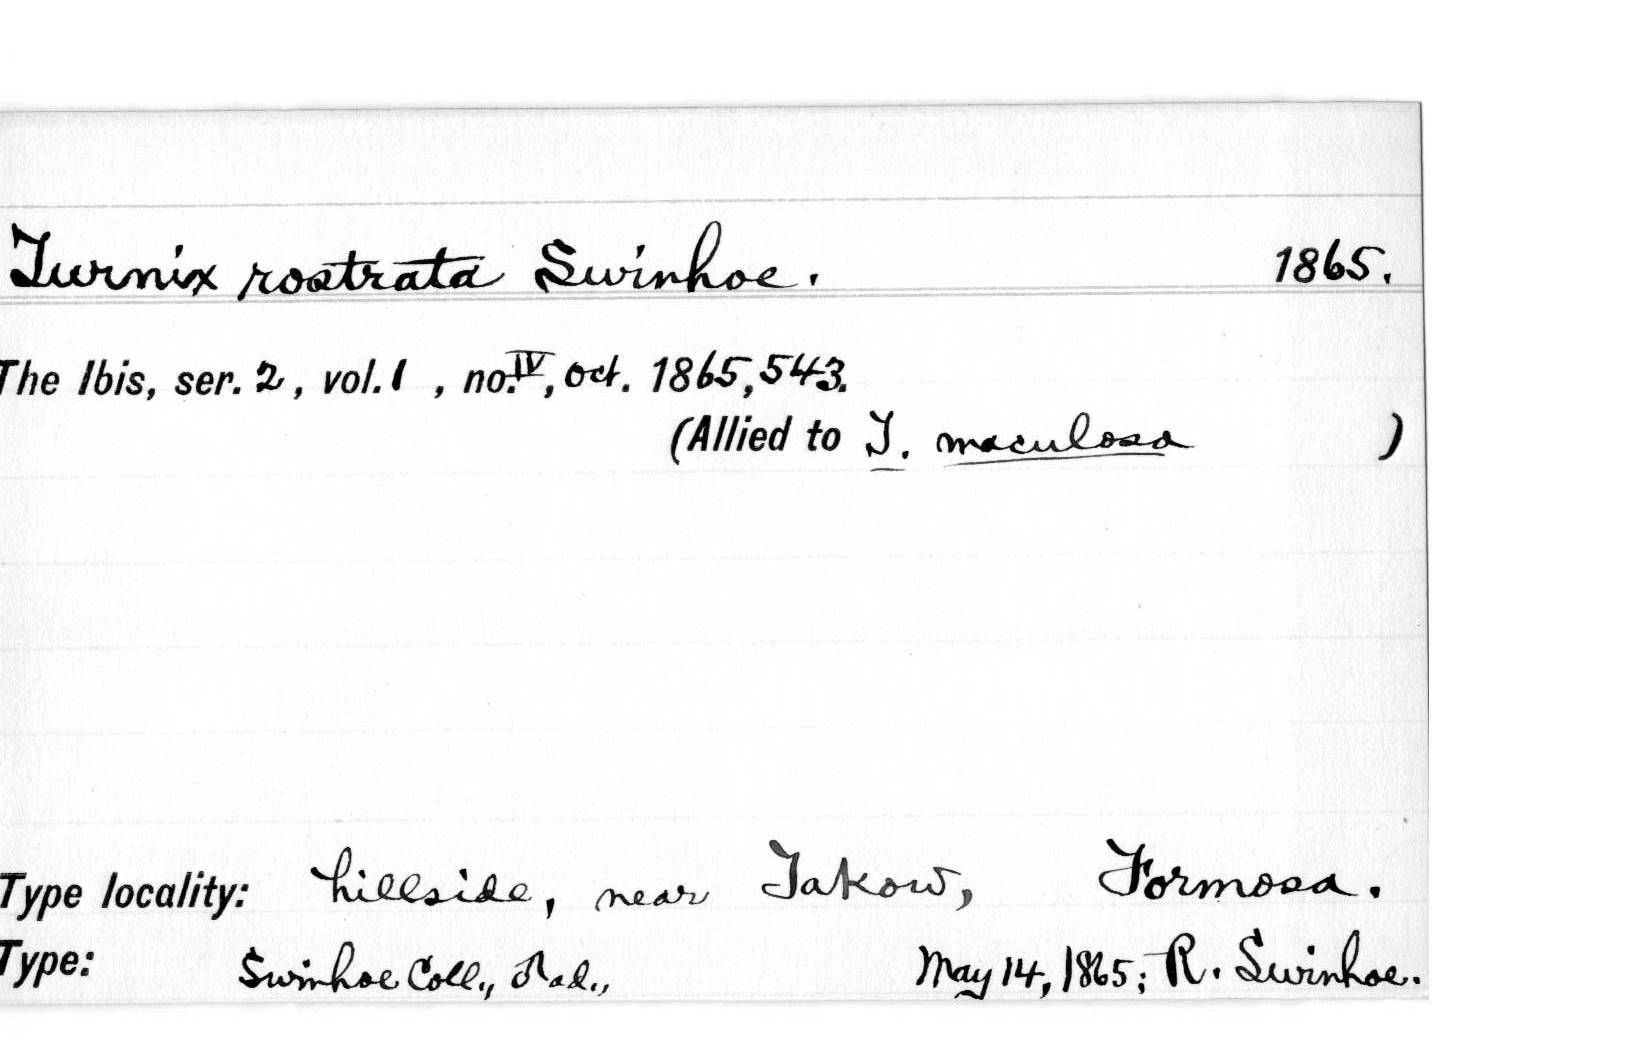 Turnix rostrata Swinhoe. 1865.
The Ibis, ser. 2, vol. 1, no. IV, Oct. 1865, 543.
(Allied to T. maculosa )
Type locality: hillside, near Takow, Formosa.
Type: Swinhoe Coll., ad., May 14, 1865; R. Swinhoe.